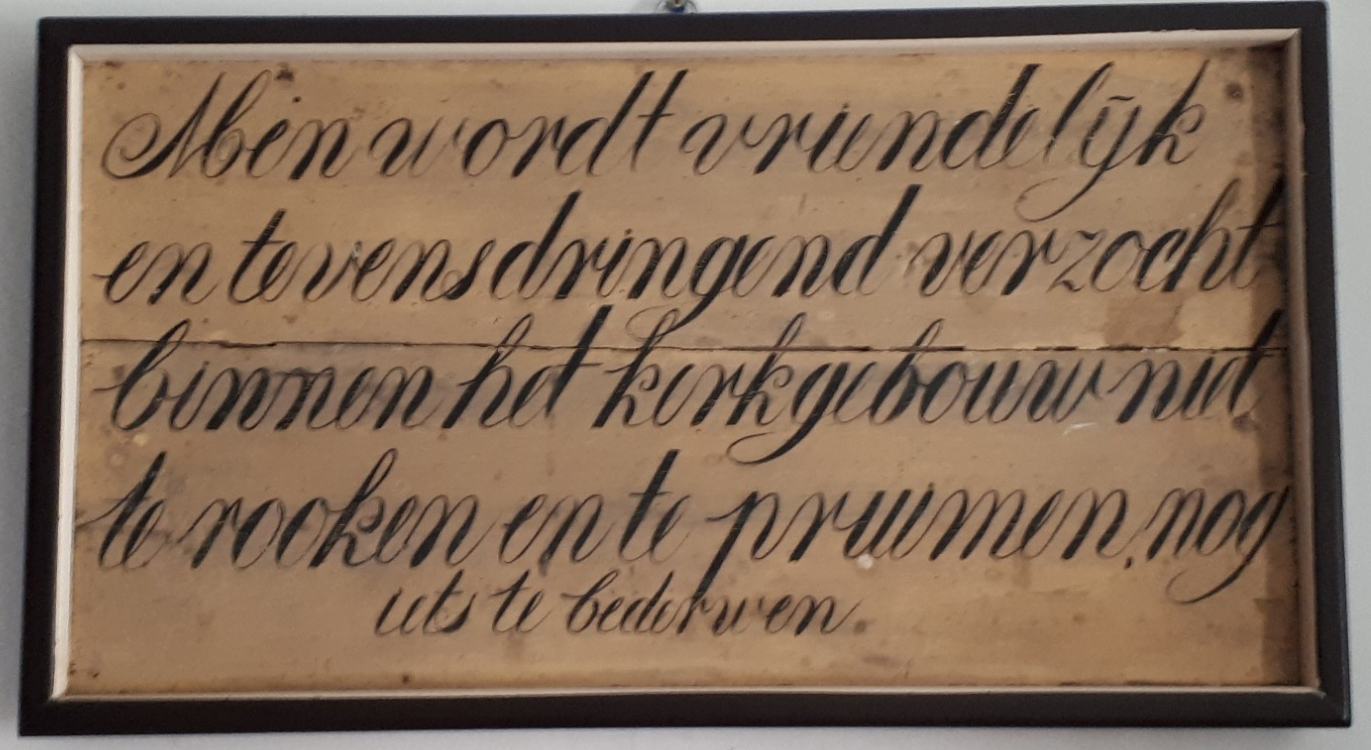 Men wordt vriendelijk
en tevens dringend verzocht
binnen het kerkgebouw niet
te rooken en te pruimen, nog
iets te bederven.